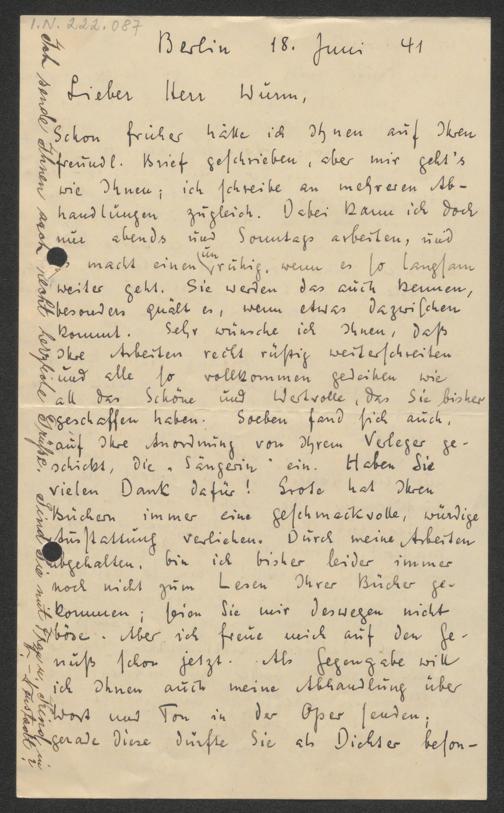 I.N. 222.087
Berlin 18. Juni 41
Lieber Herr Wurm,
Schon früher hätte ich Ihnen auf Ihren
freundl. Brief geschrieben, aber mir geht's
wie Ihnen; ich schreibe an mehreren Ab-
handlungen zugleich. Dabei kann ich doch
nur abends und Sonntags arbeiten, und
macht einen unruhig, wenn es so langsam
weiter geht. Sie werden das auch kennen,
besonders quält es, wenn etwas dazwischen
kommt. Sehr wünsche ich Ihnen, daß
Ihre Arbeiten recht rüstig weiterschreiten
und alle so vollkommen gedeihen wie
all das Schöne und Wertvolle, das Sie bisher
geschaffen haben. Soeben fand sich auch,
auf Ihre Anordnung von Ihrem Verleger ge-
schickt, die "Sängerin" ein. Haben Sie
vielen Dank dafür! Grote hat Ihren
Büchern immer eine geschmackvolle, würdige
Ausstattung verliehen. Durch meine Arbeiten
abgehalten, bin ich bisher leider immer
noch nicht zum Lesen Ihrer Bücher ge-
kommen; seien Sie mir deswegen nicht
böse. Aber ich freue mich auf den Ge-
nuß schon jetzt. Als Gegengabe will
ich Ihnen auch meine Abhandlung über
Wort und Ton in der Oper senden;
gerade diese dürfte Sie als Dichter beson-
Ich sende Ihnen auch recht herzliche Grüße. Sind Sie mit